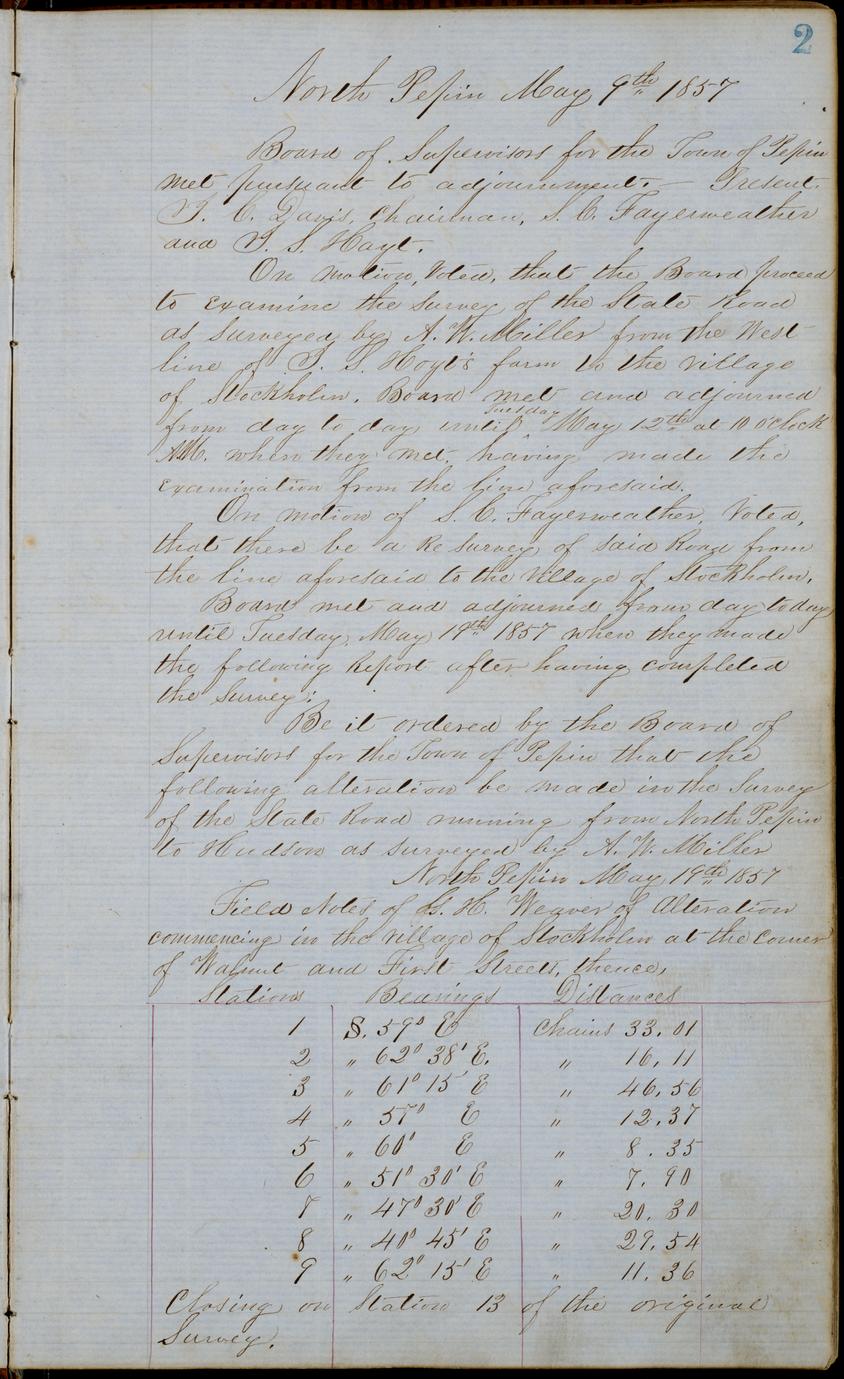 2
North Pepin May 9th 1857
Board of Supervisors for the Town of Pepin
met pursuant to adjournment. — Present.
T. C. Davis, Chairman, S. C. Fayerweather
and T. S. Hoyt.
On motion, Voted, that the Board proceed
to examine the survey of the State Road
as surveyed by A. W. Miller from the West
line of T. S. Hoyt's farm to the village
of Stockholm. Board met and adjourned
from day to day until Tuesday May 12th at 10 o'clock
A.M. when they met, having made the
examination from the line aforesaid.
On motion of S. C. Fayerweather, Voted,
that there be a Re Survey of said Road from
the line aforesaid to the Village of Stockholm.
Board met and adjourned from day to day
until Tuesday, May 19th 1857 when they made
the following Report after having completed
the Survey:
Be it ordered by the Board of
Supervisors for the Town of Pepin that the
following alteration be made in the Survey
of the State Road running from North Pepin
to Hudson as surveyed by A. W. Miller
North Pepin May 19th 1857
Field Notes of G. H. Weaver of Alteration
commencing in the village of Stockholm at the corner
of Walnut and First Streets, thence,
Stations Bearings Distances
1 S. 59° E Chains 33.01
2 " 62° 38' E. " 16.11
3 " 61° 15' E " 46.56
4 " 57° E " 12.37
5 " 60° E " 8.35
6 " 51° 30' E " 7.90
7 " 47° 30' E " 20.30
8 " 40° 45' E " 29.54
9 " 62° 15' E " 11.36
Closing on Station 13 of the original
Survey.